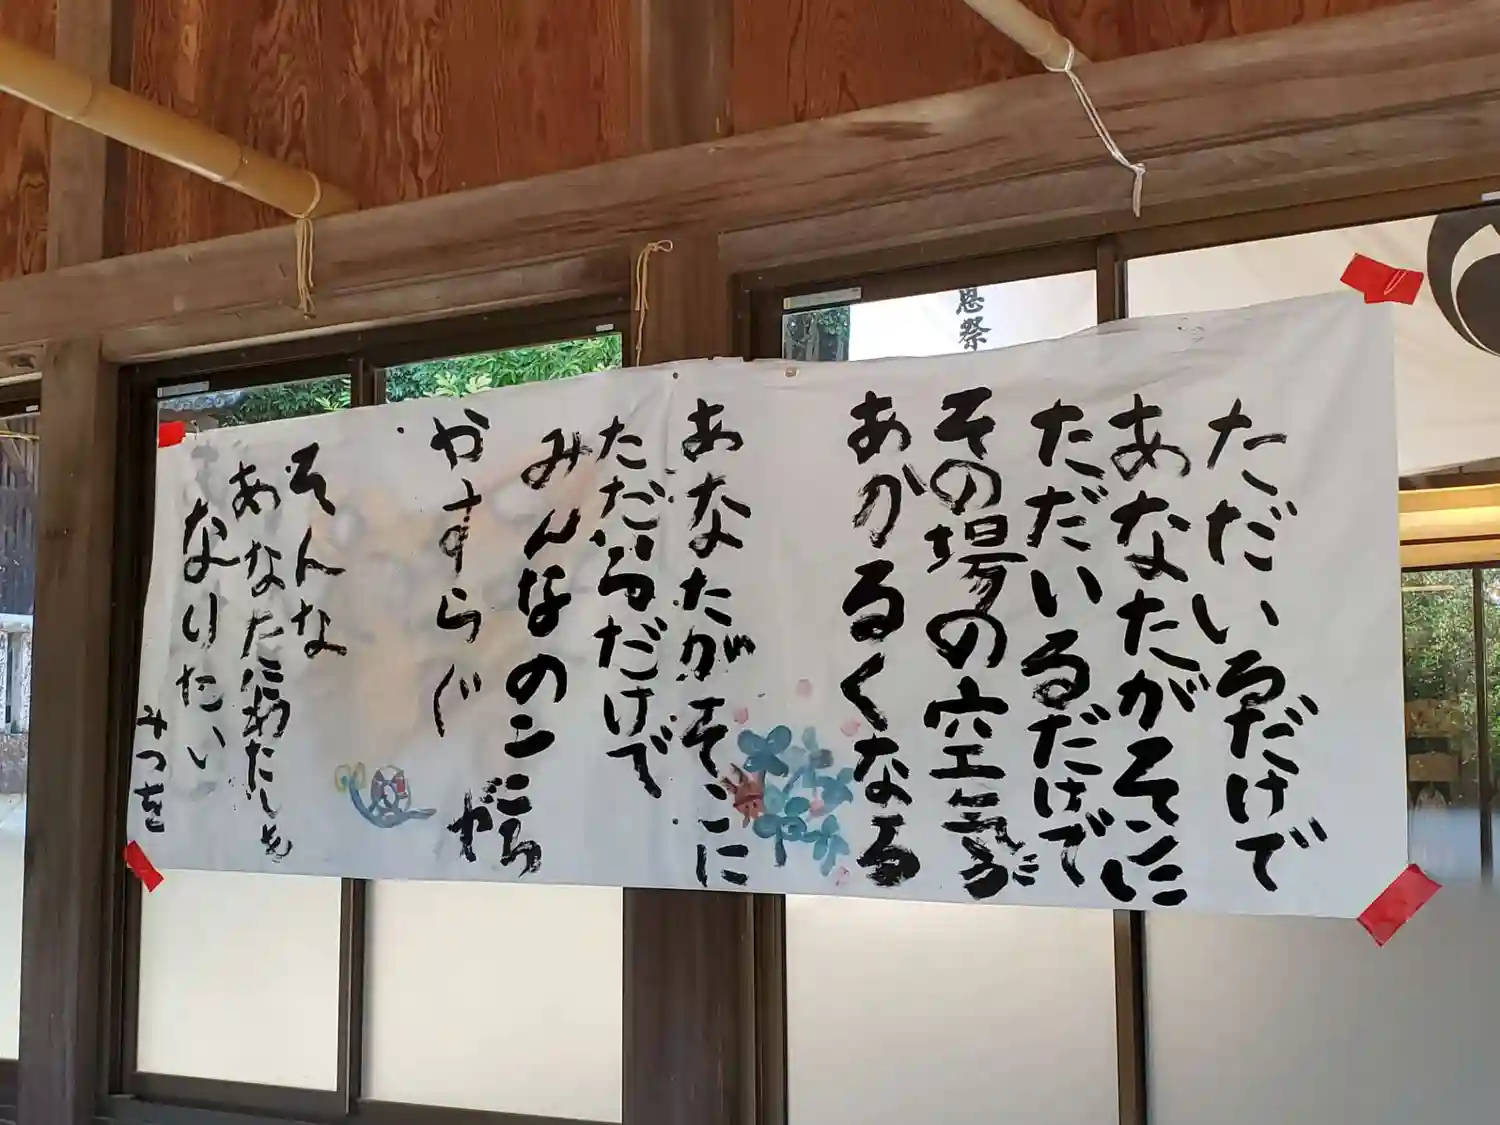 ただいるだけで
あなたがそこに
ただいるだけで
その場の空気が
あかるくなる
あなたがそこに
ただいるだけで
みんなのこころが
やすらぐ
そんな
あなたにわたしも
なりたい
みつを
恩祭